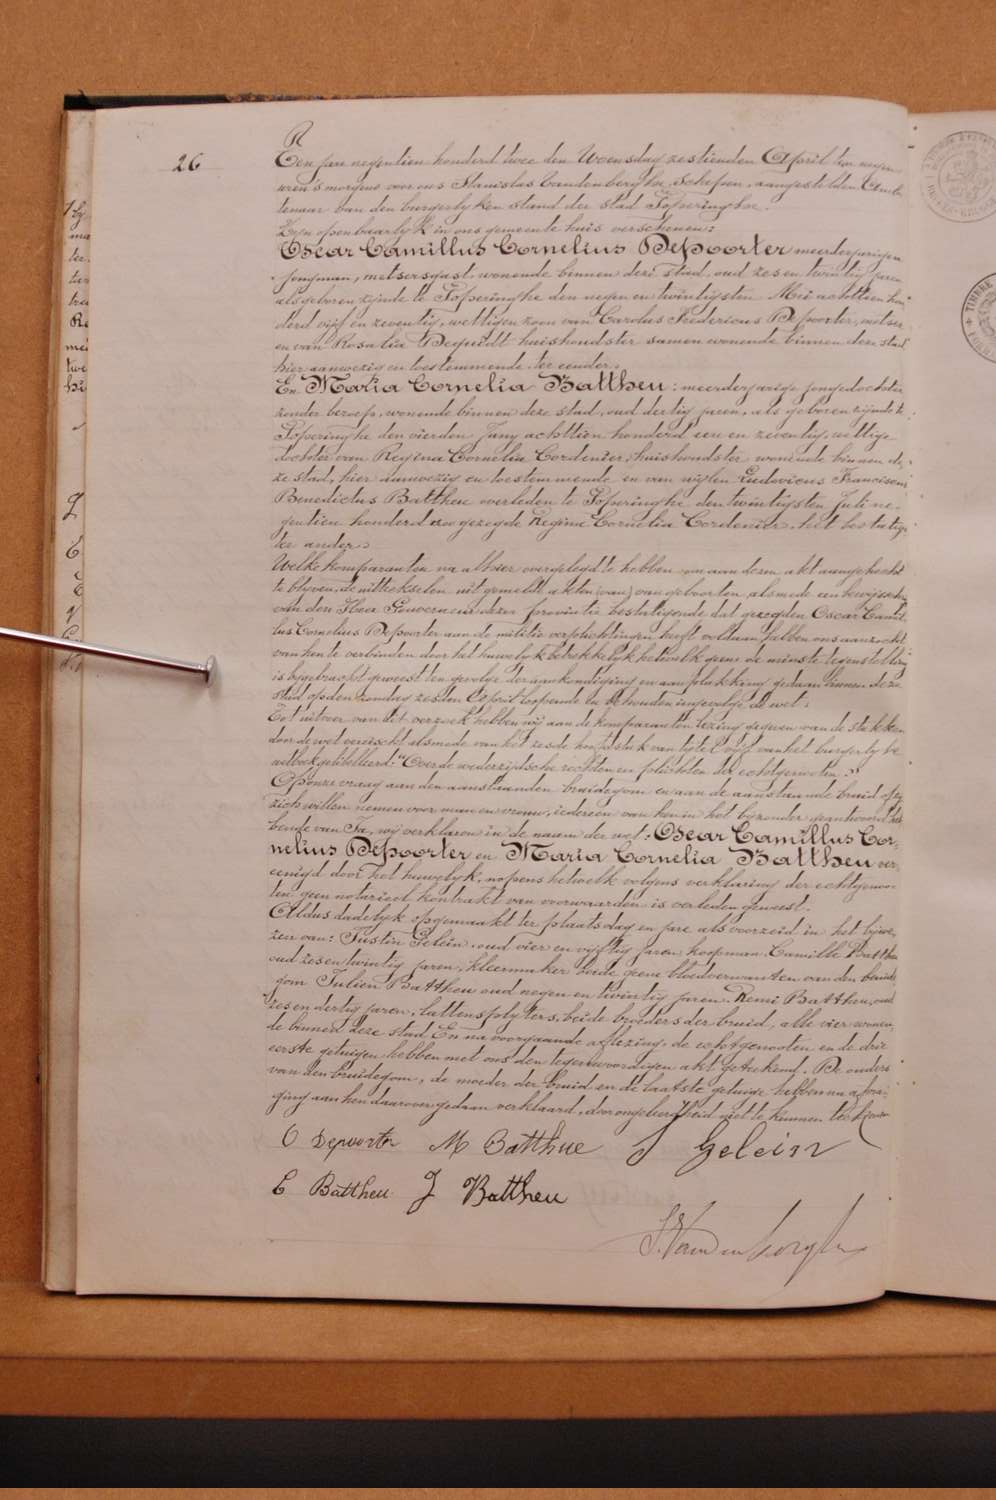 26
Een jare negentien honderd twee den Woensdag zestienden April ten negen
uren 's morgens voor ons Stanislas Vandenberghe, Schepen, aangestelden Amb-
tenaar van den burgerlyken stand der stad Poperinghe.
Zyn openbaarlyk in ons gemeente huis verschenen:
Oscar Camillus Cornelius Depoorter meerderjarigen
jongman, metsersgast, wonende binnen deze stad, oud zes en twintig jaren
als geboren zijnde te Poperinghe den negen en twintigsten Mei achttien hon-
derd vijf en zeventig, wettigen zoon van Carolus Fredericus Depoorter, metser
en van Rosalia Dequidt huishoudster samen wonende binnen deze stad
hier aanwezig en toestemmende. ter eender.
En Maria Cornelia Battheu: meerderjarige jongedochter
zonder beroep, wonende binnen deze stad, oud dertig jaren, als geboren zijnde te
Poperinghe den vierden Juny achttien honderd een en zeventig, wettige
dochter van Regina Cornelia Cordenier, huishoudster wonende binnen de-
ze stad, hier aanwezig en toestemmende en van wijlen Ludovicus Franciscus
Benedictus Battheu overleden te Poperinghe den twintigsten Juli ne-
gentien honderd zoo gezegde Regina Cornelia Cordenier het bestatigt
ter andere
Welke komparanten na alhier overgelegd te hebben om aan dezen akt aangehecht
te blyven, de uittrekselen uit gemelde akten (van) van geboorten, alsmede een bewijsschrift
van den Heer Gouverneur dezer provintie bestatigende dat gezegden Oscar Camil-
lus Cornelius Depoorter aan de militie verplichtingen heeft voldaan, hebben ons aanzocht
van hen te verbinden door het huwelyk betrekkelyk hetwelk geene de minste tegenstelling
is bygebracht geweest ten gevolge der aankondiging en aanplakking gedaan binnen deze
stad op den zondag zesden April loopende en behouden ingevolge de wet.
Tot uitvoer van dit verzoek hebben wij aan de komparanten lezing gegeven van de stukken
door de wet vereischt alsmede van het zesde hoofdstuk van tytel vijf van het burgerlyk
wetboek getibelleerd: "Over de wederzijdsche rechten en plichten der echtgenooten."
Op onze vraag aan den aanstaanden bruidegom en aan de aanstaande bruid of zy
zich willen nemen voor man en vrouw, iedereen van hen in het byzonder geantwoord heb-
bende van Ja, wij verklaren in de naam der wet: Oscar Camillus Cor-
nelius Depoorter en Maria Cornelia Battheu ver-
eenigd door het huwelyk, nopens hetwelk volgens verklaring der echtgenoo-
ten geen notarieel kontrakt van voorwaarden is verleden geweest.
Aldus dadelyk opgemaakt ter plaats dag en jare als voorzeid in het bijwe-
zen van: Justin Gelein, oud vier en vijftig jaren, koopman, Camille Battheu
oud zes en twintig jaren, kleermaker beide geene bloedverwanten van den bruide-
gom Julien Battheu oud negen en twintig jaren. Remi Battheu, oud
zes en dertig jaren, lattensplyters, beide broeders der bruid, alle vier wonen-
de binnen deze stad En na voorgaande aflezing, de echtgenooten en de drie
eerste getuigen hebben met ons den tegenwoordigen akt geteekend. De ouders
van den bruidegom, de moeder der bruid en de laatste getuige hebben na afvra-
ging aan hen daarover gedaan verklaard, door ongeleerdheid niet te kunnen teekenen
O Depoorter M Batthue J Gelein
C Battheu J Battheu
S. Vandenberghe